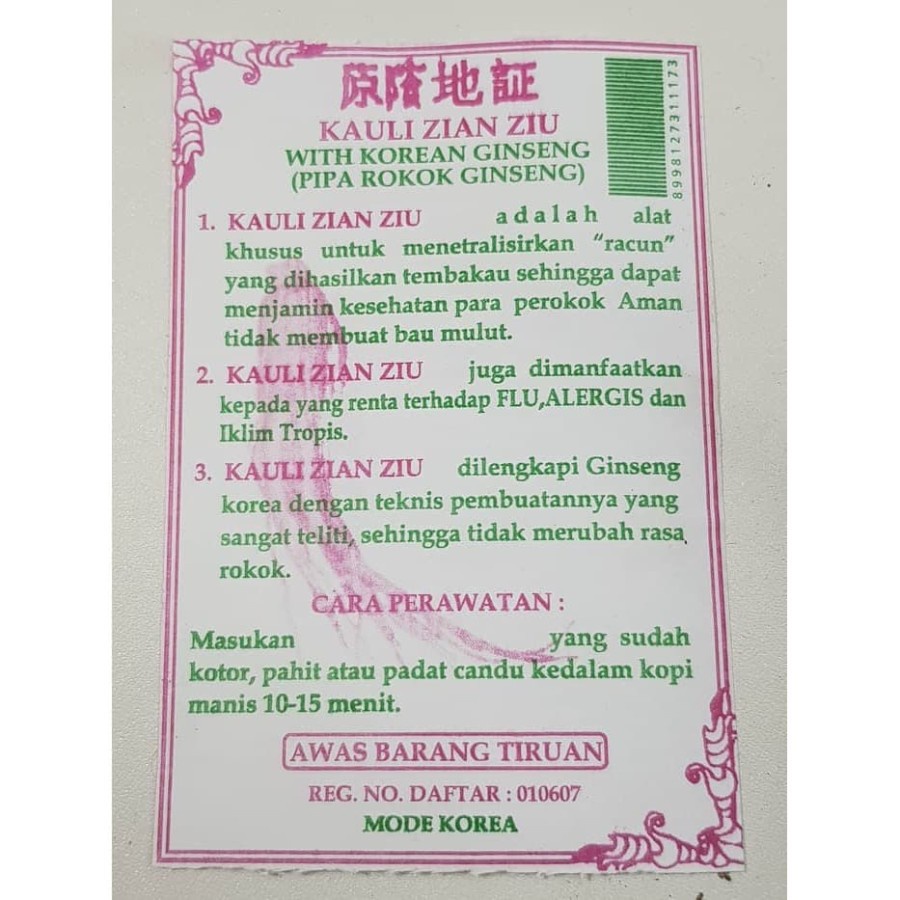 KAULI ZIAN ZIU
WITH KOREAN GINSENG
(PIPA ROKOK GINSENG)
8998127311173
1. KAULI ZIAN ZIU adalah alat
khusus untuk menetralisirkan “racun”
yang dihasilkan tembakau sehingga dapat
menjamin kesehatan para perokok Aman
tidak membuat bau mulut.
2. KAULI ZIAN ZIU juga dimanfaatkan
kepada yang renta terhadap FLU,ALERGIS dan
Iklim Tropis.
3. KAULI ZIAN ZIU dilengkapi Ginseng
korea dengan teknis pembuatannya yang
sangat teliti, sehingga tidak merubah rasa
rokok.
CARA PERAWATAN :
Masukan yang sudah
kotor, pahit atau padat candu kedalam kopi
manis 10-15 menit.
AWAS BARANG TIRUAN
REG. NO. DAFTAR : 010607
MODE KOREA